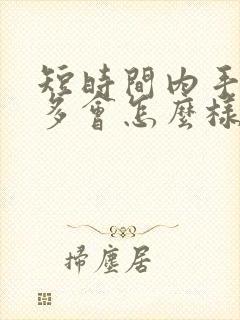 短時間內手
多會怎麼樣
掃塵居